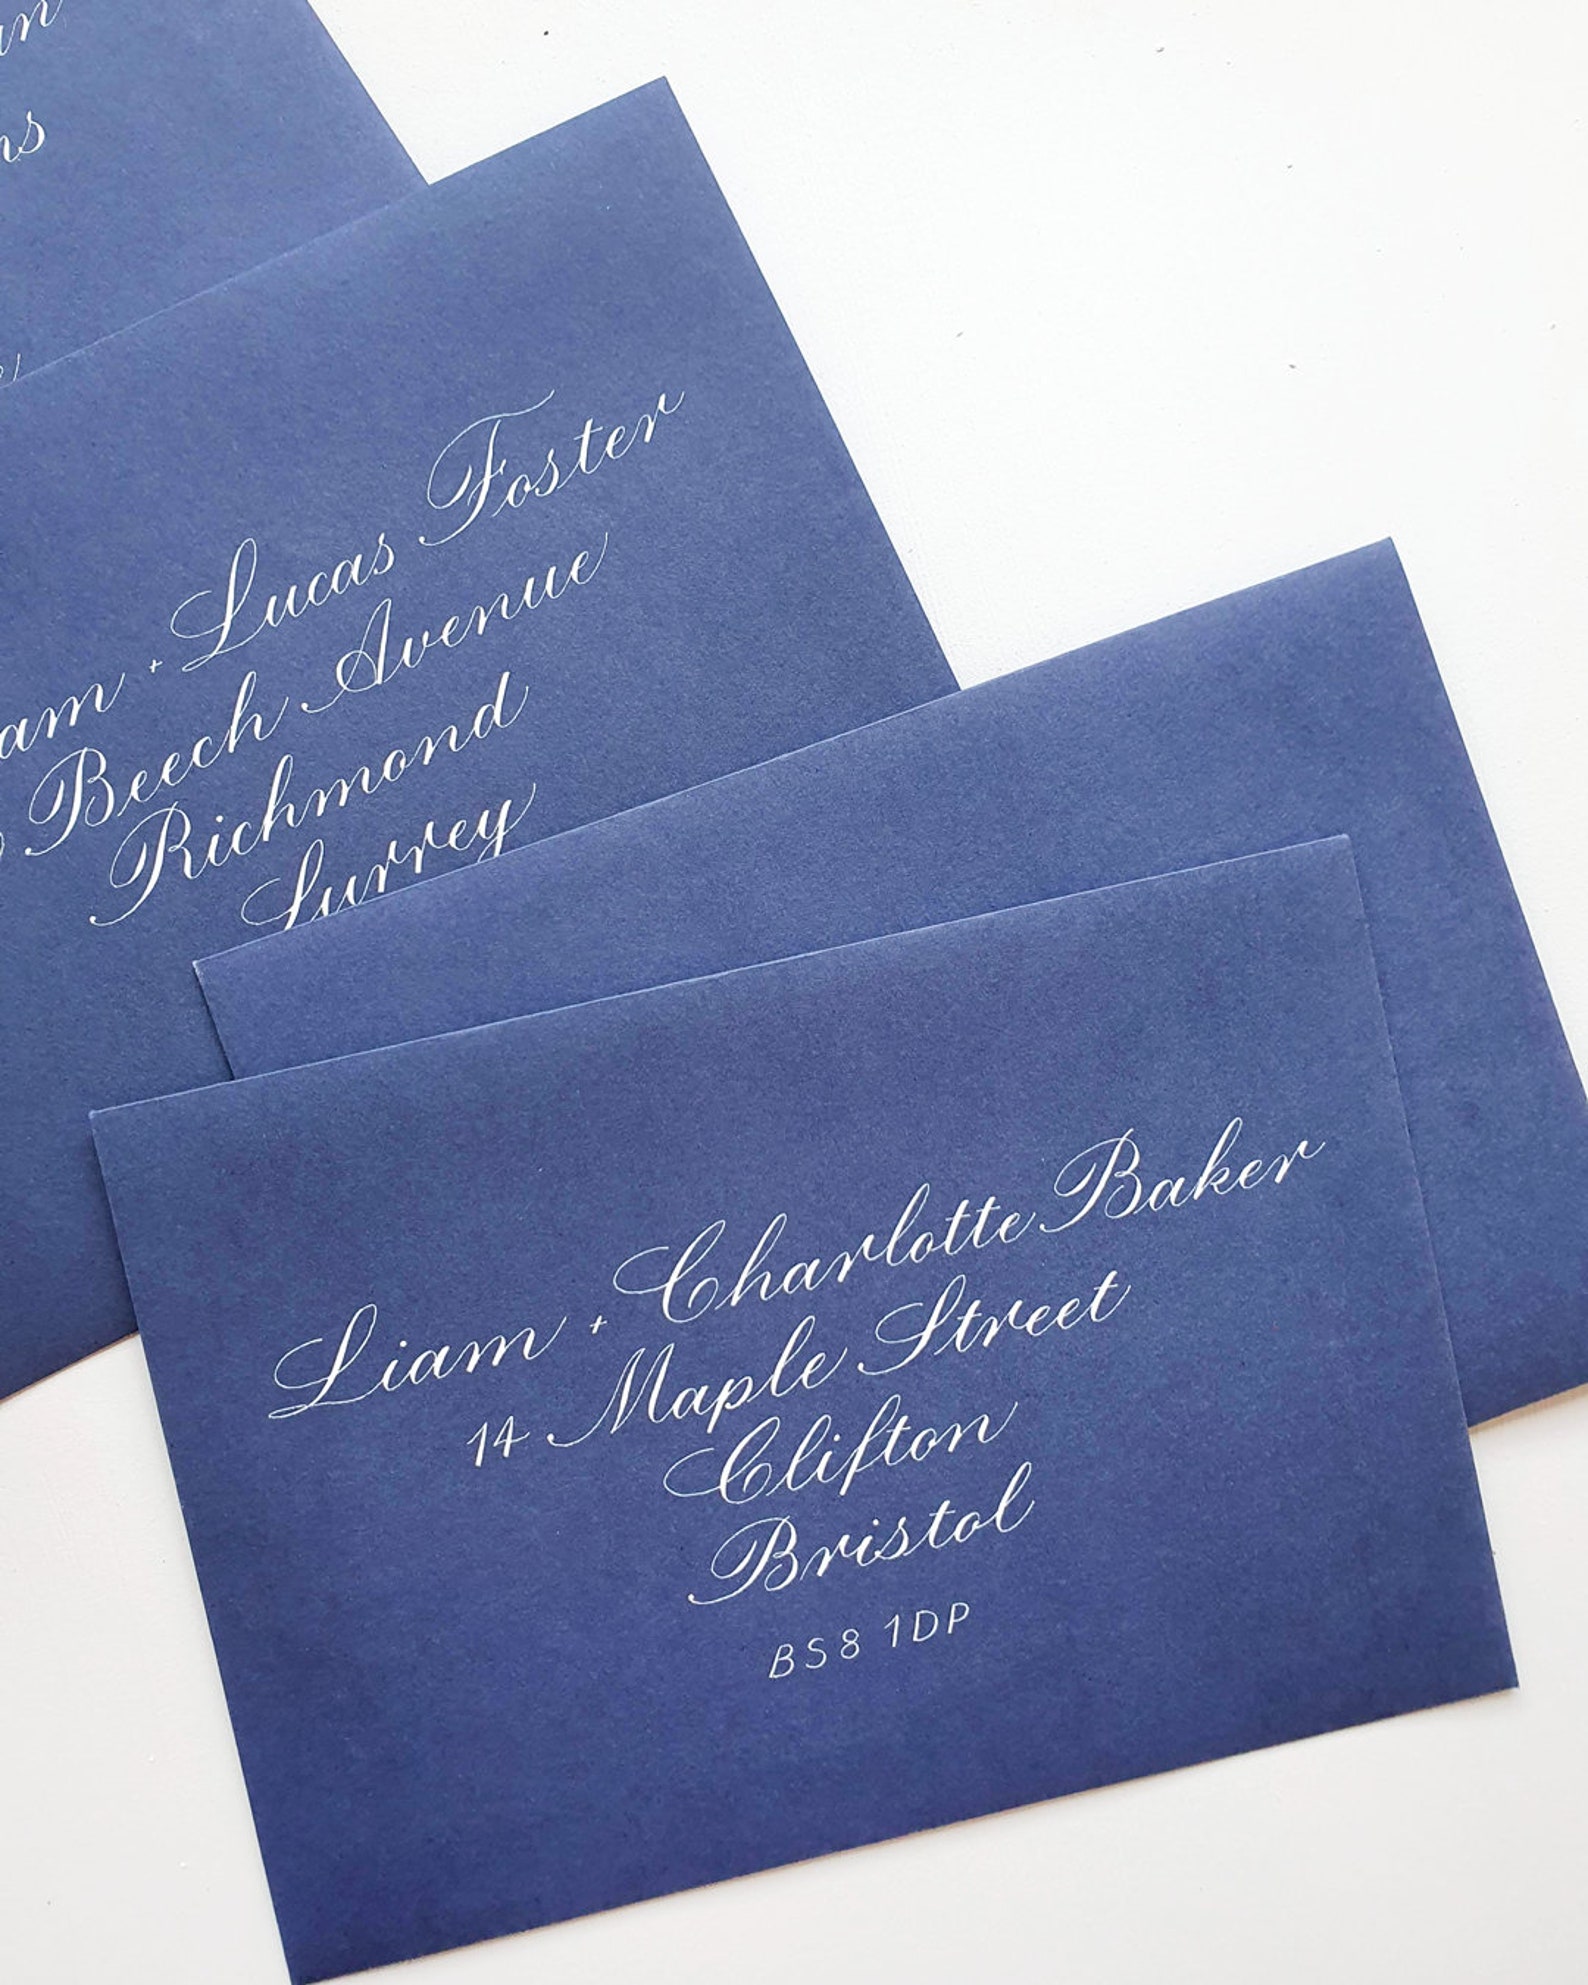 Lucas Foster
Beech Avenue
Richmond
Surrey
Liam + Charlotte Baker
14 Maple Street
Clifton
Bristol
BS8 1DP